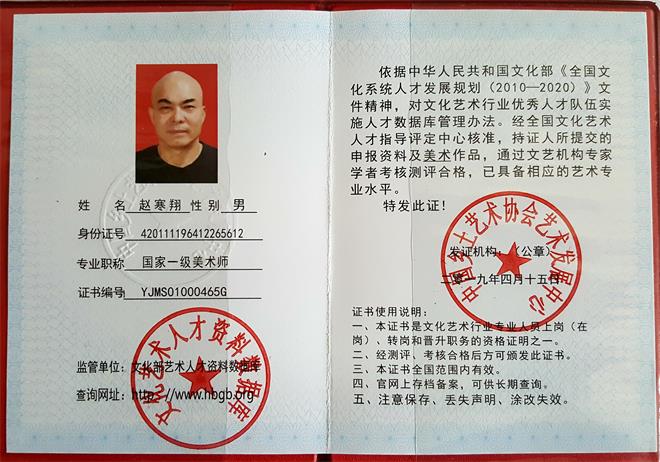 姓 名 赵寒翔 性别 男
身份证号 420111196412265612
专业职称 国家一级美术师
证书编号 YJMS01000465G
监管单位：文化部艺术人才资料数据库
查询网址：http://www.hbgb.org
文化艺术人才资料数据库
依据中华人民共和国文化部《全国文
化系统人才发展规划（2010—2020）》文
件精神，对文化艺术行业优秀人才队伍实
施人才数据库管理办法。经全国文化艺术
人才指导评定中心核准，持证人所提交的
申报资料及美术作品，通过文艺机构专家
学者考核测评合格，已具备相应的艺术专
业水平。
特发此证！
中国乡土艺术协会艺术发展中心
发证机构：（公章）
二零一九年四月十五日
证书使用说明：
一、本证书是文化艺术行业专业人员上岗（在
岗）、转岗和晋升职务的资格证明之一。
二、经测评、考核合格后方可颁发此证书。
三、本证书全国范围内有效。
四、官网上存档备案，可供长期查询。
五、注意保存、丢失声明、涂改失效。